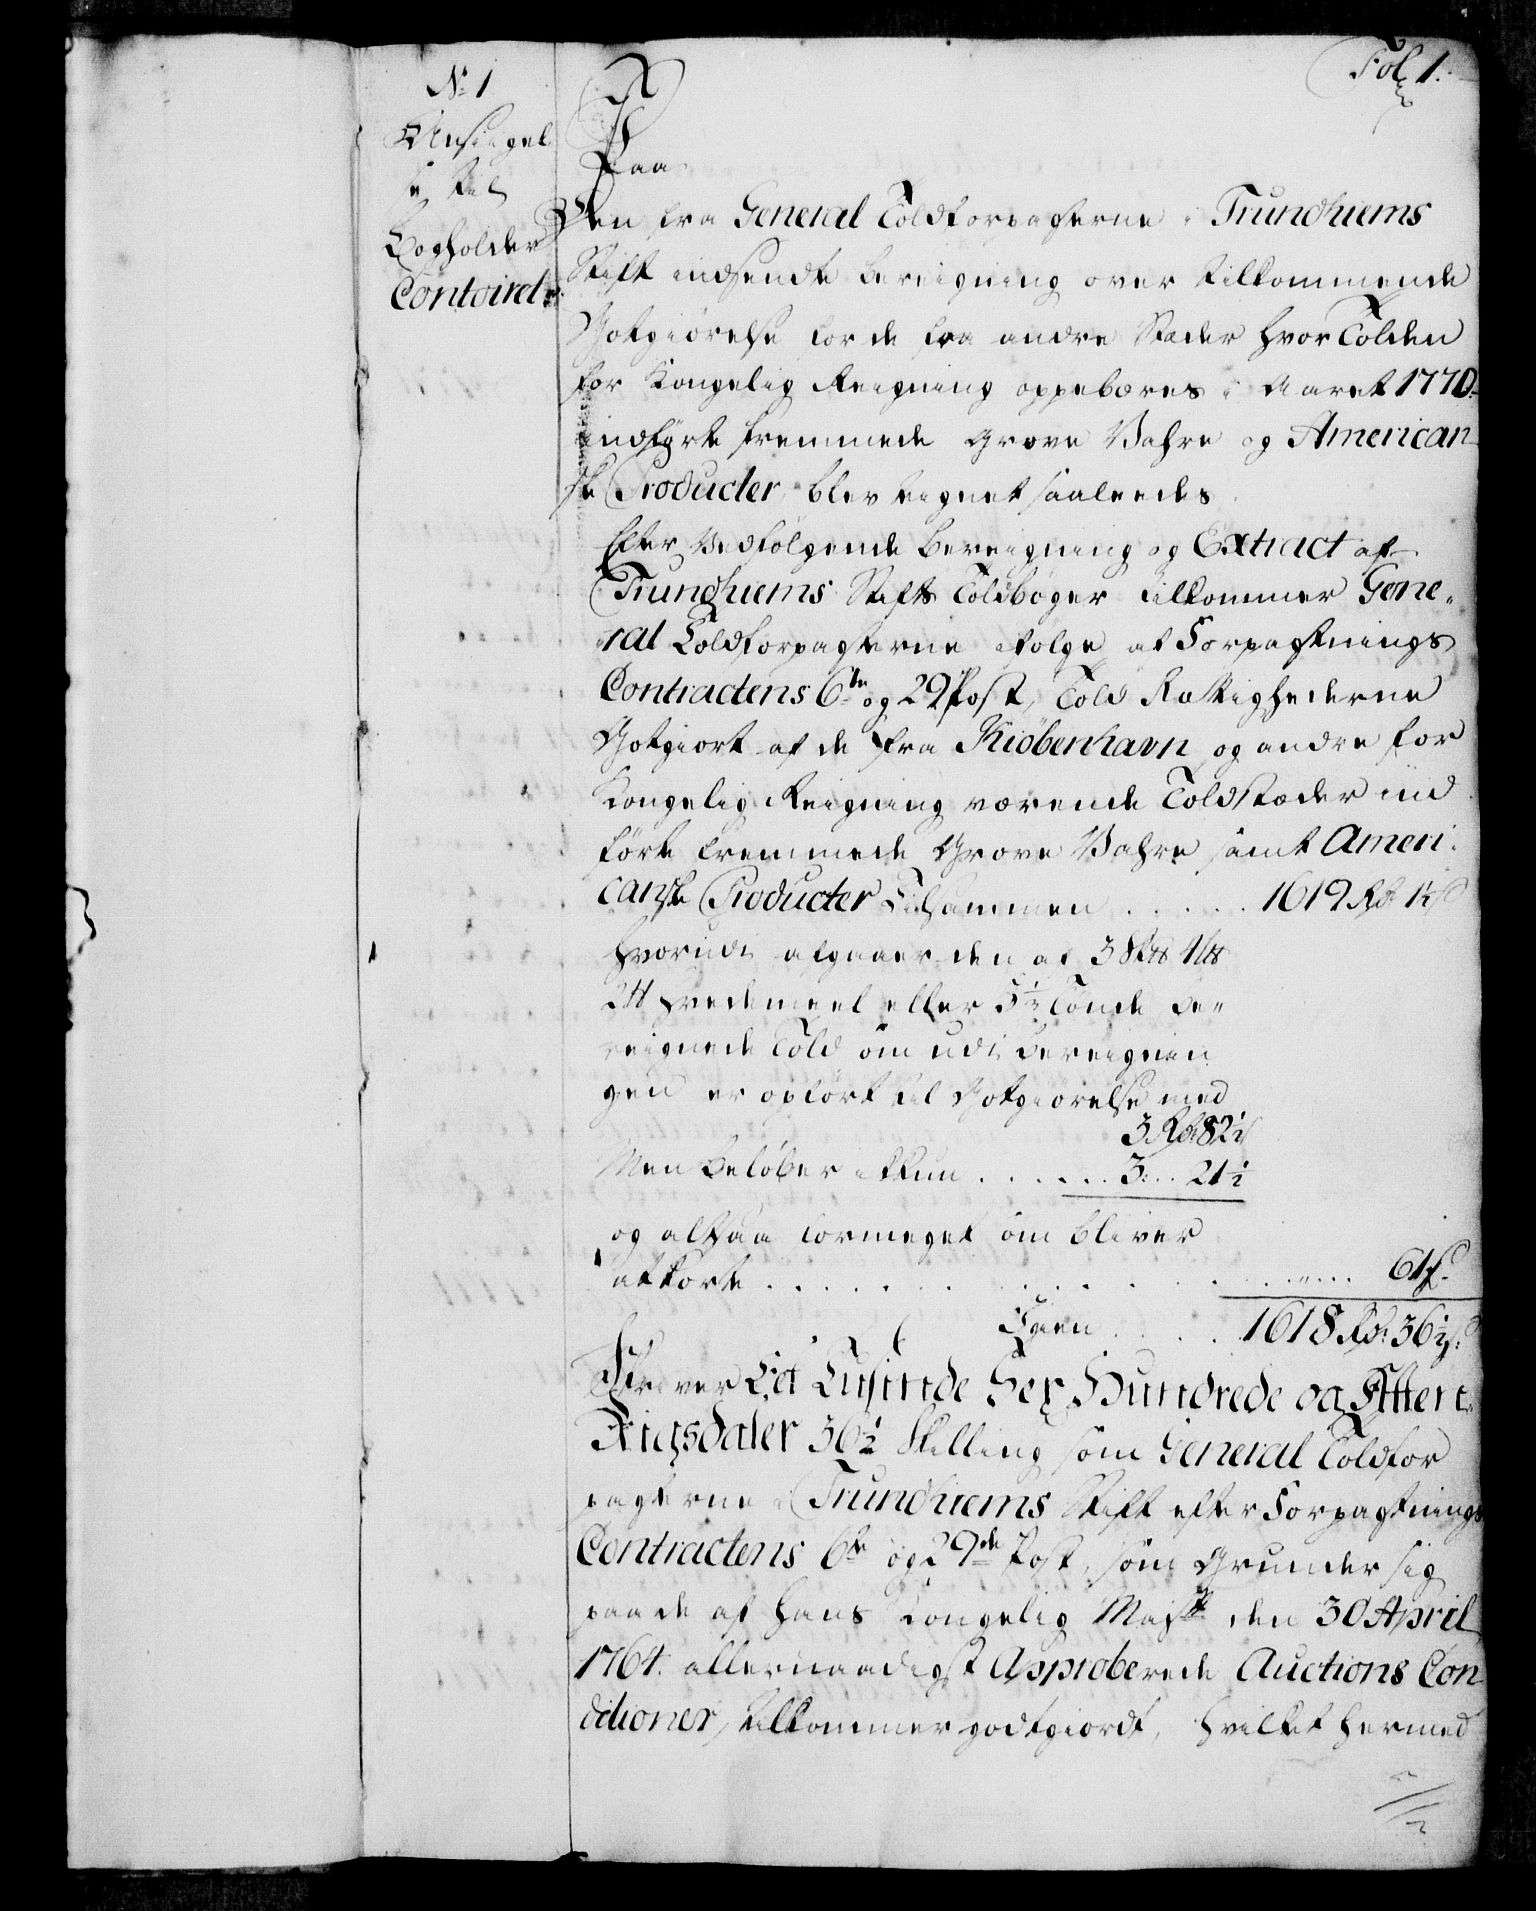 Fol 1.
No 1
Ansiegel
se til
Bogholder
Contoiret
Paa
Den fra General Toldforpagterne i Trundhiems
Stift indsendte Bereigning over tilkommende
Gotgiørelse for de fra andre Stæder hvor Tolden
for Kongelig Reigning oppebæres i Aaret 1770.
indførte fremmede Grove Vahre og American-
ske Producter, blev teignet saaleedes.
Efter Vedfølgende Bereigning og Extract af
Trundhiems Stifts Toldbøger tilkommer Gene-
ral Toldforpagterne ifølge af Forpagtnings
Contractens 6te og 29 Post, Told Rættighederne
Gotgiort af de fra Kiøbenhavn og andre for
Kongelig Reigning værende Toldstæder ind
førte fremmede Grove Vahre samt Ameri-
canske Producter Tilsammen . . . . . 1619 Rd 1½ s
hvorudi afgaaer den af 3 Sk℔ 4 L℔
2 ℔ Hvedemeel eller 5½ Tønde be-
reignede Told som udi Bereignin
gen er opført til Gotgiørelse med
3 Rd 82½
Men beløber ikkun . . . . . . 3 . . . 21½
og altsaa formeget som bliver
afkorte . . . . . . . . . . . . 61 s.
Igien . . . . 1618 Rd 36½ s.
Skriver Eet Tusinde Sex Hundrede og Atten
Rigsdaler 36½ Skilling som General Toldfor
pagterne i Trundhiems Stift efter Forpagtnings
Contractens 6te og 29de Post, som Grunder sig
paa de af Hans Kongelig Majst den 30 April
1764. allernaadigst Approberede Auctions Con
ditioner, tilkommer godtgiordt, hvilket hermed